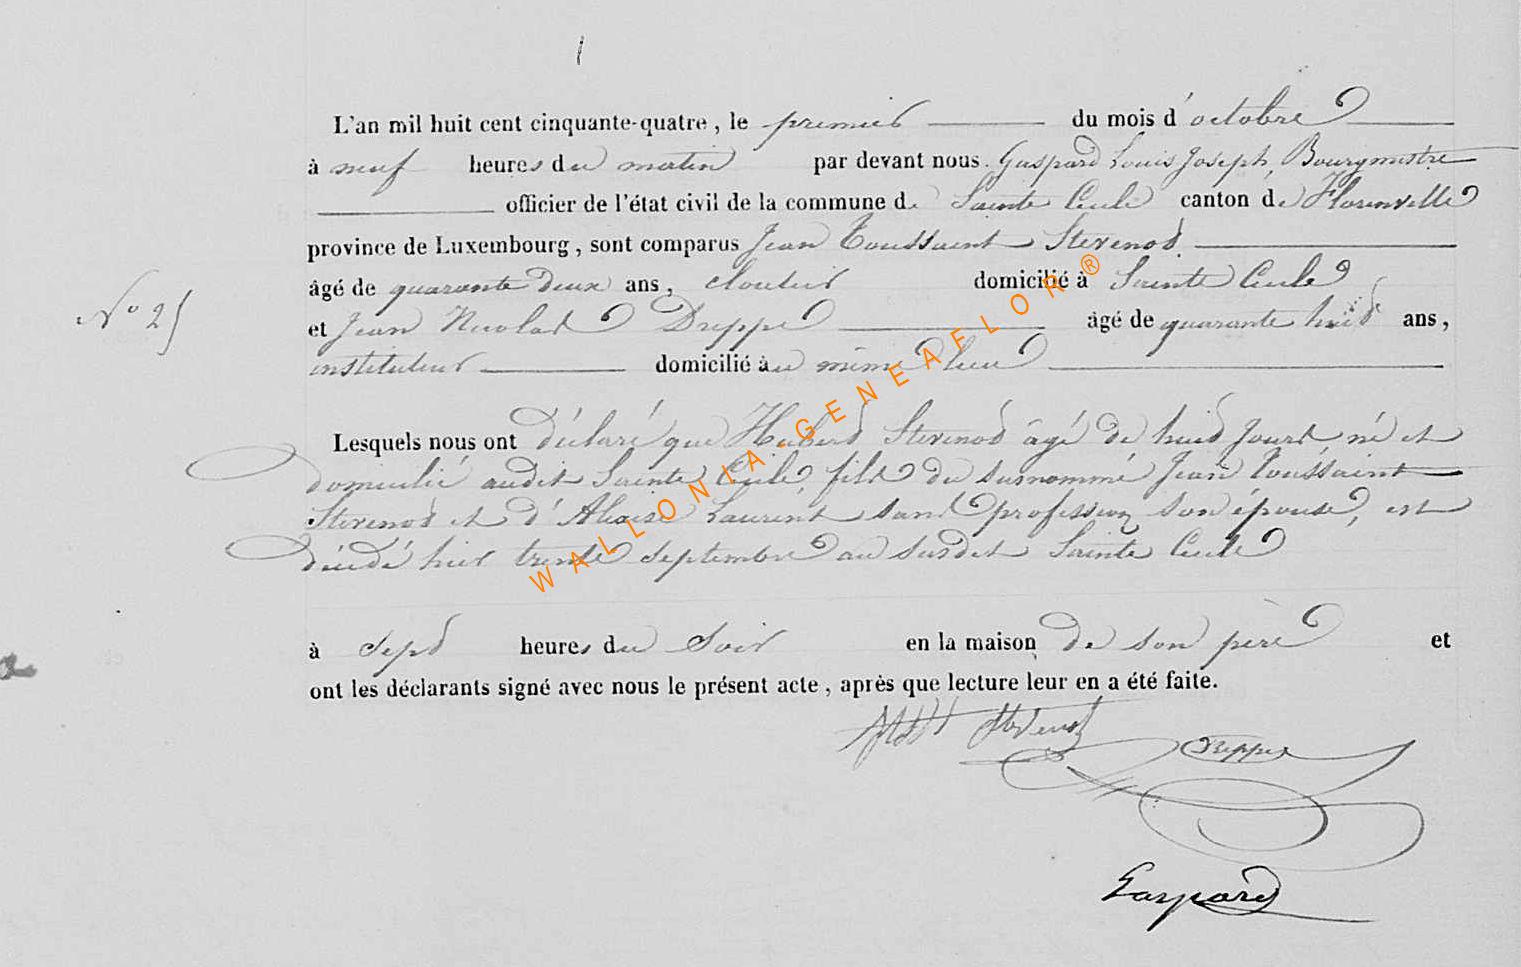 L'an mil huit cent cinquante-quatre, le premier du mois d'octobre
à neuf heures du matin par devant nous Gaspard Louis Joseph, Bourgmestre
officier de l'état civil de la commune de Sainte Cécile canton de Florenville
province de Luxembourg, sont comparus Jean Toussaint Stevenot
âgé de quarante deux ans, cloutier domicilié à Sainte Cécile
N° 25
et Jean Nicolas Dreppe âgé de quarante huit ans,
instituteur domicilié au même lieu
Lesquels nous ont déclaré que Hubert Stevenot âgé de huit jours né et
domicilié audit Sainte Cécile, fils du susnommé Jean Toussaint
Stevenot et d'Aloise Laurent sans profession son épouse, est
décédé hier trente septembre au susdit Sainte Cécile
à sept heures du soir en la maison de son père et
ont les déclarants signé avec nous le présent acte, après que lecture leur en a été faite.
Stevenot
Dreppe
Gaspard
WALLONIA-GENEAFLOR®